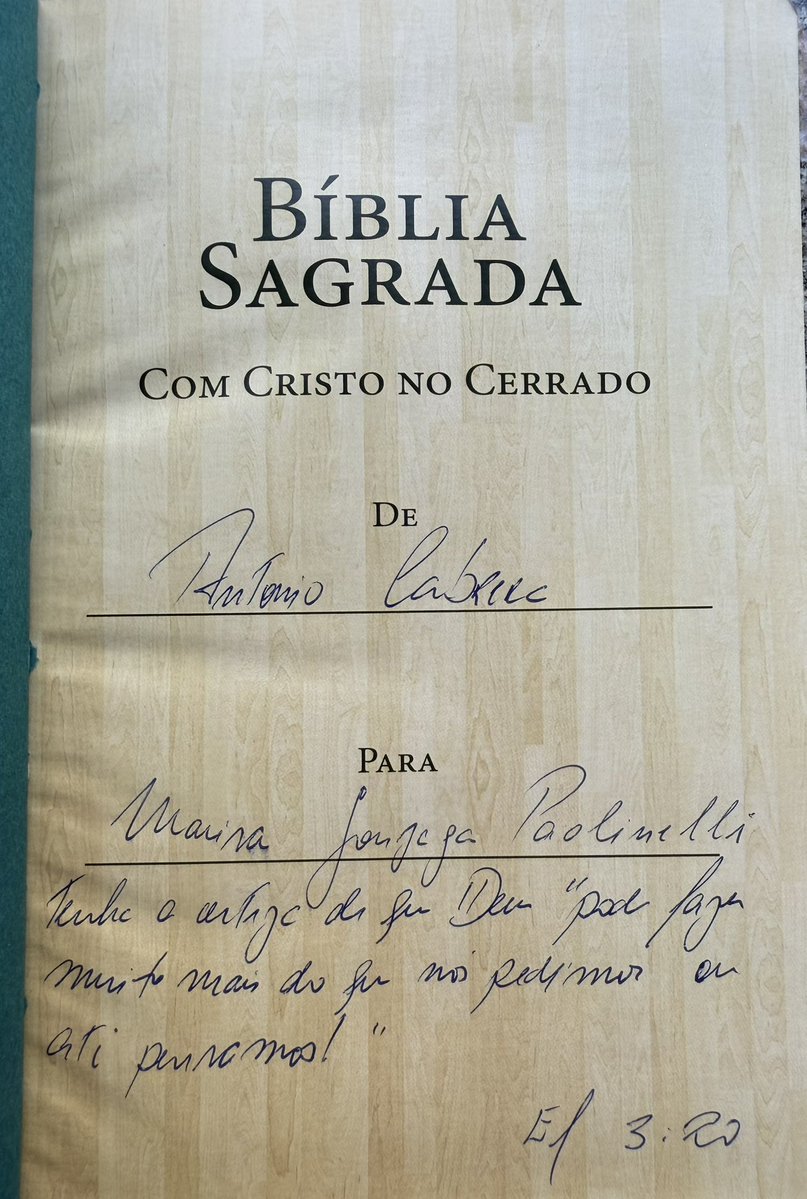 BÍBLIA
SAGRADA
COM CRISTO NO CERRADO
DE
Antonio Cabrera
PARA
Marisa Gonzaga Paolinelli
Tenha a certeza de que Deus "pode fazer
muito mais do que nós pedimos ou
até pensamos!"
Ef 3:20